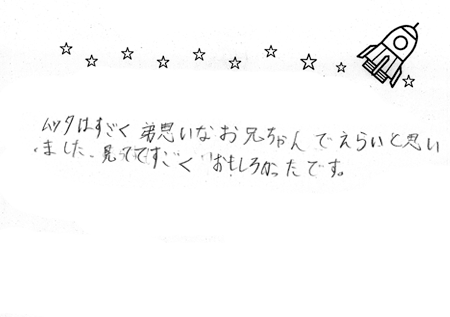 ムッタはすごく弟思いなお兄ちゃんでえらいと思い
ました、見ててすごくおもしろかったです。